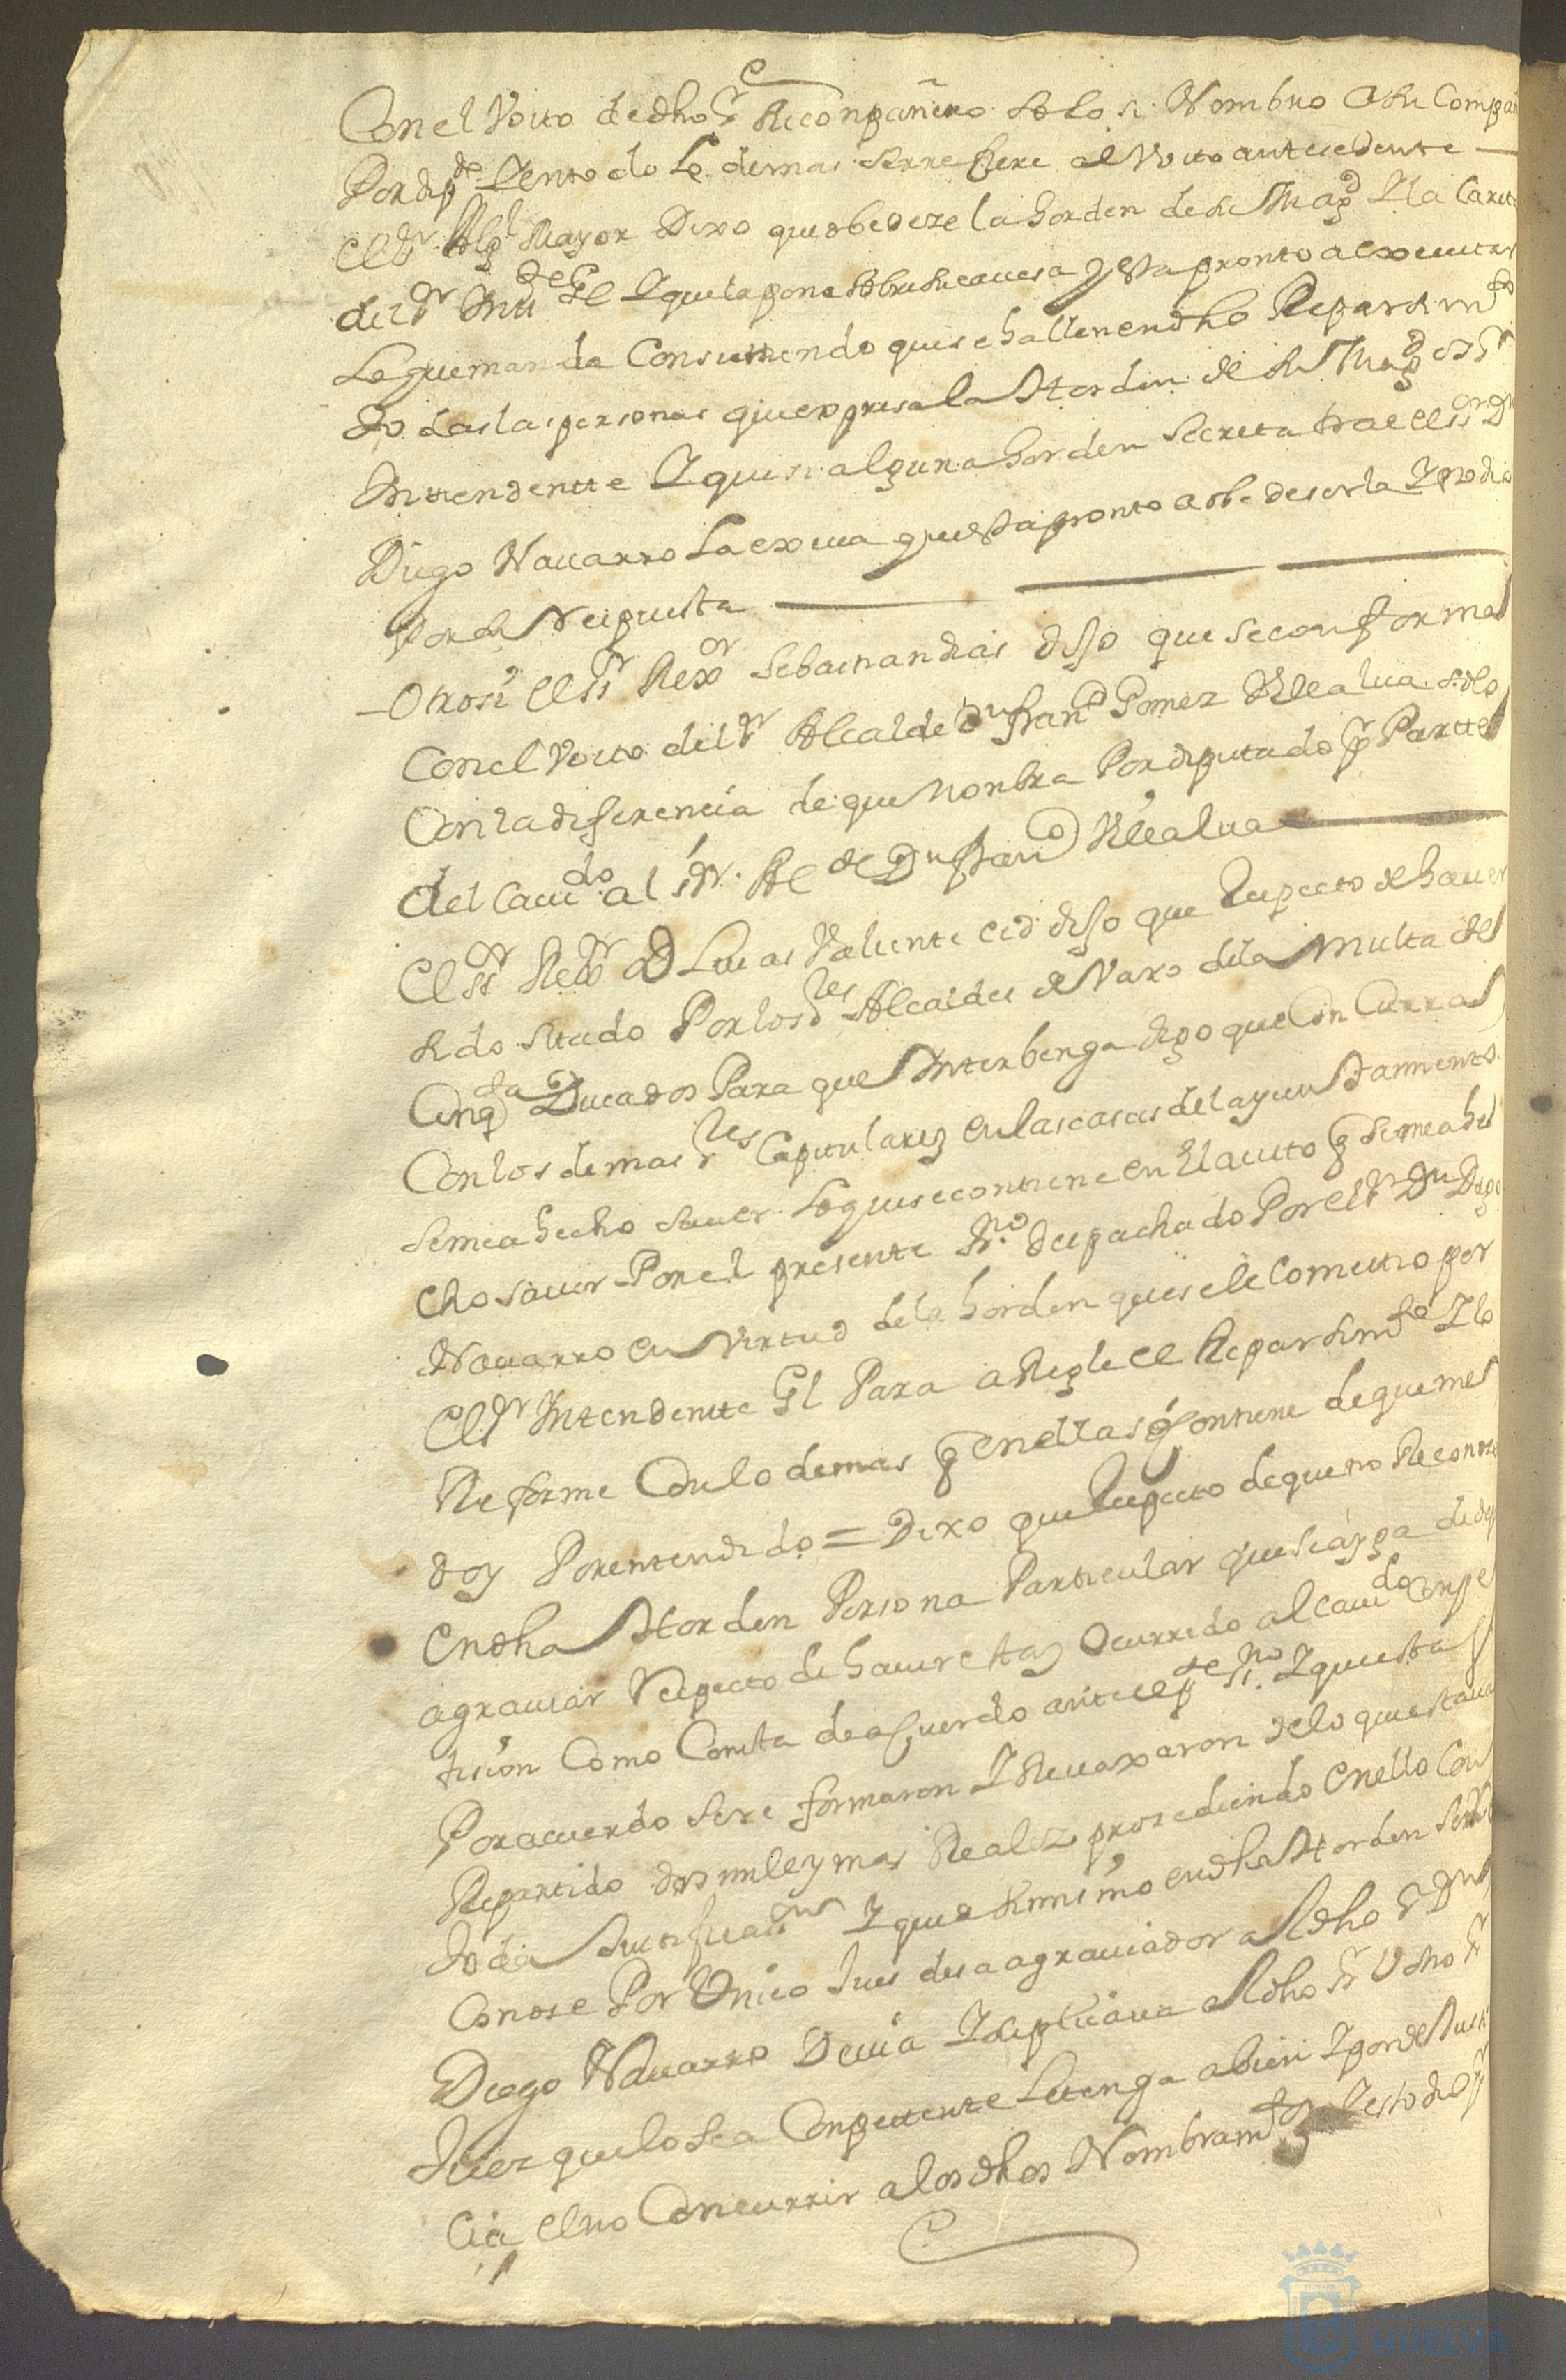 Con el Voto de dho Sr Reconpañero solo si Nombro a su Compa
Por dipdo Y en todo lo demas se rrefiere al Voto antesedente
El Sr Alg Mayor Dixo que obedeze la horden de su Magd Y la Carta
del Sr Intte Gl Y que la pone sobre su cavesa y esta pronto a executar
Lo que manda Consintiendo que se hallen en dho Repartimto
todas las personas que expresa la Horden de su Magd el Sr
Inttendentte Y que si alguna horden secreta trae el Sr Dn
Diego Navarro La exiva que esta pronto a obedeserla Y pr dio
Por su Respuesta
Otrosi el Sr Rexor Sebastian dias dijo que se conforma
Con el Voto del Sr Alcalde Dn Franco Gomez Villalva solo
Con la diferencia de que nonbra Por diputado Por Partte
del Cavdo al Sr Alde Dn Franco Villalva
El Sr Rexor D Lucas Valiente Cid dijo que Respecto de haver
sido sitado Por los Sres Alcaldes devaxo de la Multa de
Cinqta Ducados Para que Interbenga digo que Concurra
Con los demas Sres Capitulares en las casas del ayuntamiento
se me a hecho saver Lo que se contiene en El auto q se me a he
cho saver Por el presente Srno despachado Por el Sr Dn Diego
Navarro en Virtud de la horden que se le Cometio por
El Sr Intendentte Gl Para aRegle el Repartimto Y lo
Reforme Con lo demas q en ellas se Contiene de que me
doy Por entendido = Dixo que Respecto de que no Reconoze
en dha Horden Persona Particular que se aya de des
agraviar Respecto de haver estas Ocurrido al Cavdo Conpe
tision Como Consta de aquerdo ante el pte Srno Y que esta
Por acuerdo se re formaron Y Revaxaron de lo que estava
Repartido dos mil y mas Reales prosediendo en ello Con
toda Justificasion Y que asimismo en dha Horden se Re
Conose Por Unico Jues desaagraviador al dho Sr Dn
Diego Navarro Devia Y Suplicava al dho Sr V dho Sr
Juez que lo sea Conpettente Lo tenga a bien Y por de Justi
cia el no Concurrir a los dhos Nombramtos Y esto dio pr
HUELVA